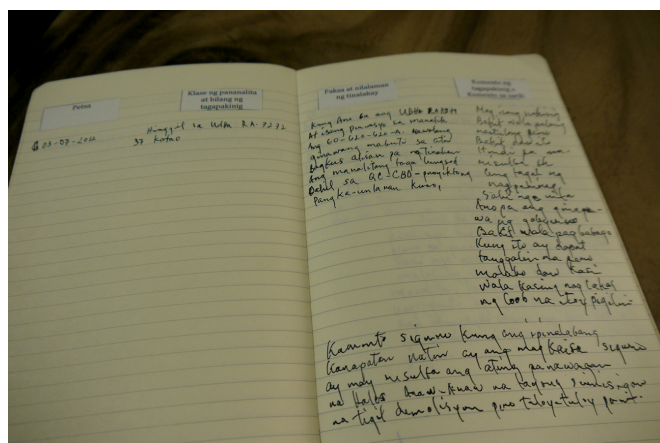 Petsa
Klase ng pananalita
at bilang ng
tagapakinig
Paksa at nilalaman
ng tinalakay
Komento ng
tagapakinig o
Komento sa sarili
03-07-2012
Hinggil sa UDHA RA-7272
37 katao
Kung Ano ba ang UDHA RA 7279
At isang panuusyo sa maralita
Ang EO-620-620-A. Nawalang
ginawang mabuti sa atin
bagkus alisan pa ng tirahan
Ang maralitang taga lungsod
Dahil sa QC-CBD-proyektong
pangka-unlaran kuno,
May isang
Bakit wala palang
Bakit
ang tagal ng
Sabi nga nila
Ano pa ang ginaga-
wa ng gobyerno
Bakit wala pagbabago
Kung ito ay dapat
tanggalin na pero
malabo daw kasi
wala kasing nag lakas
ng loob na ito'y pigilin
Komento siguro kung ang ipinalabang
karapatan natin ay ang magkaisa siguro
ay may resulta ang ating panawagan
na halos Araw-Araw na tayong sumisigaw
na tigil demolisyon pero tuloy-tuloy parin.